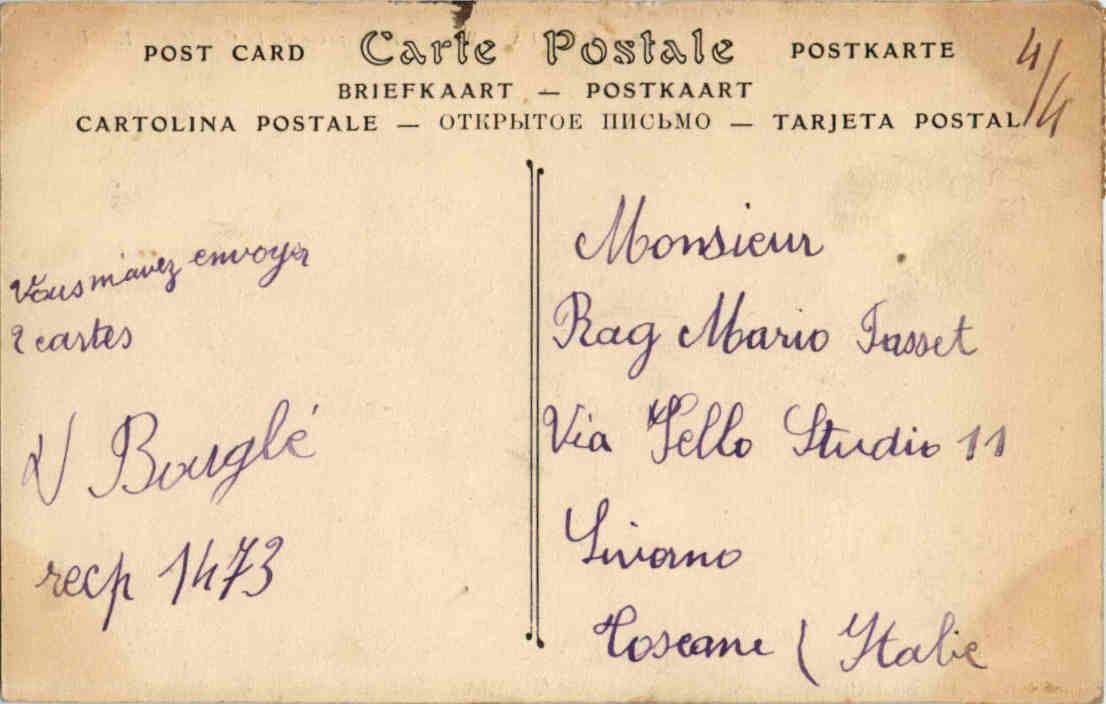 POST CARD Carte Postale POSTKARTE
BRIEFKAART — POSTKAART
CARTOLINA POSTALE — ОТКРЫТОЕ ПИСЬМО — TARJETA POSTAL
4/4
Vous m'avez envoyer
2 cartes
V Bouglé
recp 1473
Monsieur
Rag Mario Tasset
Via Lello Studio 11
Livorno
Toscane (Italie